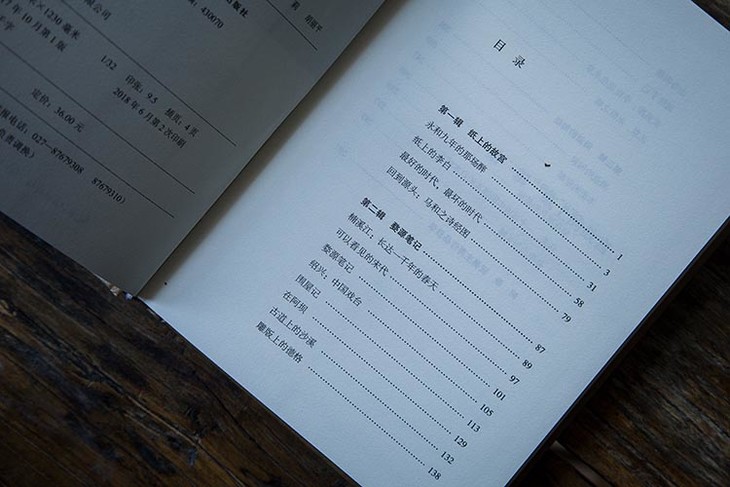 版社
430070
有限公司
×1230 毫米
1/32
印张：9.5 插页：4 页
17 年 10 月第 1 版
2018 年 6 月第 2 次印刷
定价：36.00 元
报电话：027—87679308 87679310）
负责调换）
目 录
第一辑 纸上的故宫 1
永和九年的那场醉 3
纸上的李白 31
最好的时代，最坏的时代 58
回到源头：马和之诗经图 79
第二辑 婺源笔记 87
楠溪江：长达一千年的春天 89
可以看见的宋代 97
婺源笔记 101
绍兴：中国戏台 105
围屋记 113
在阿坝 129
古道上的沙溪 132
雕版上的德格 138